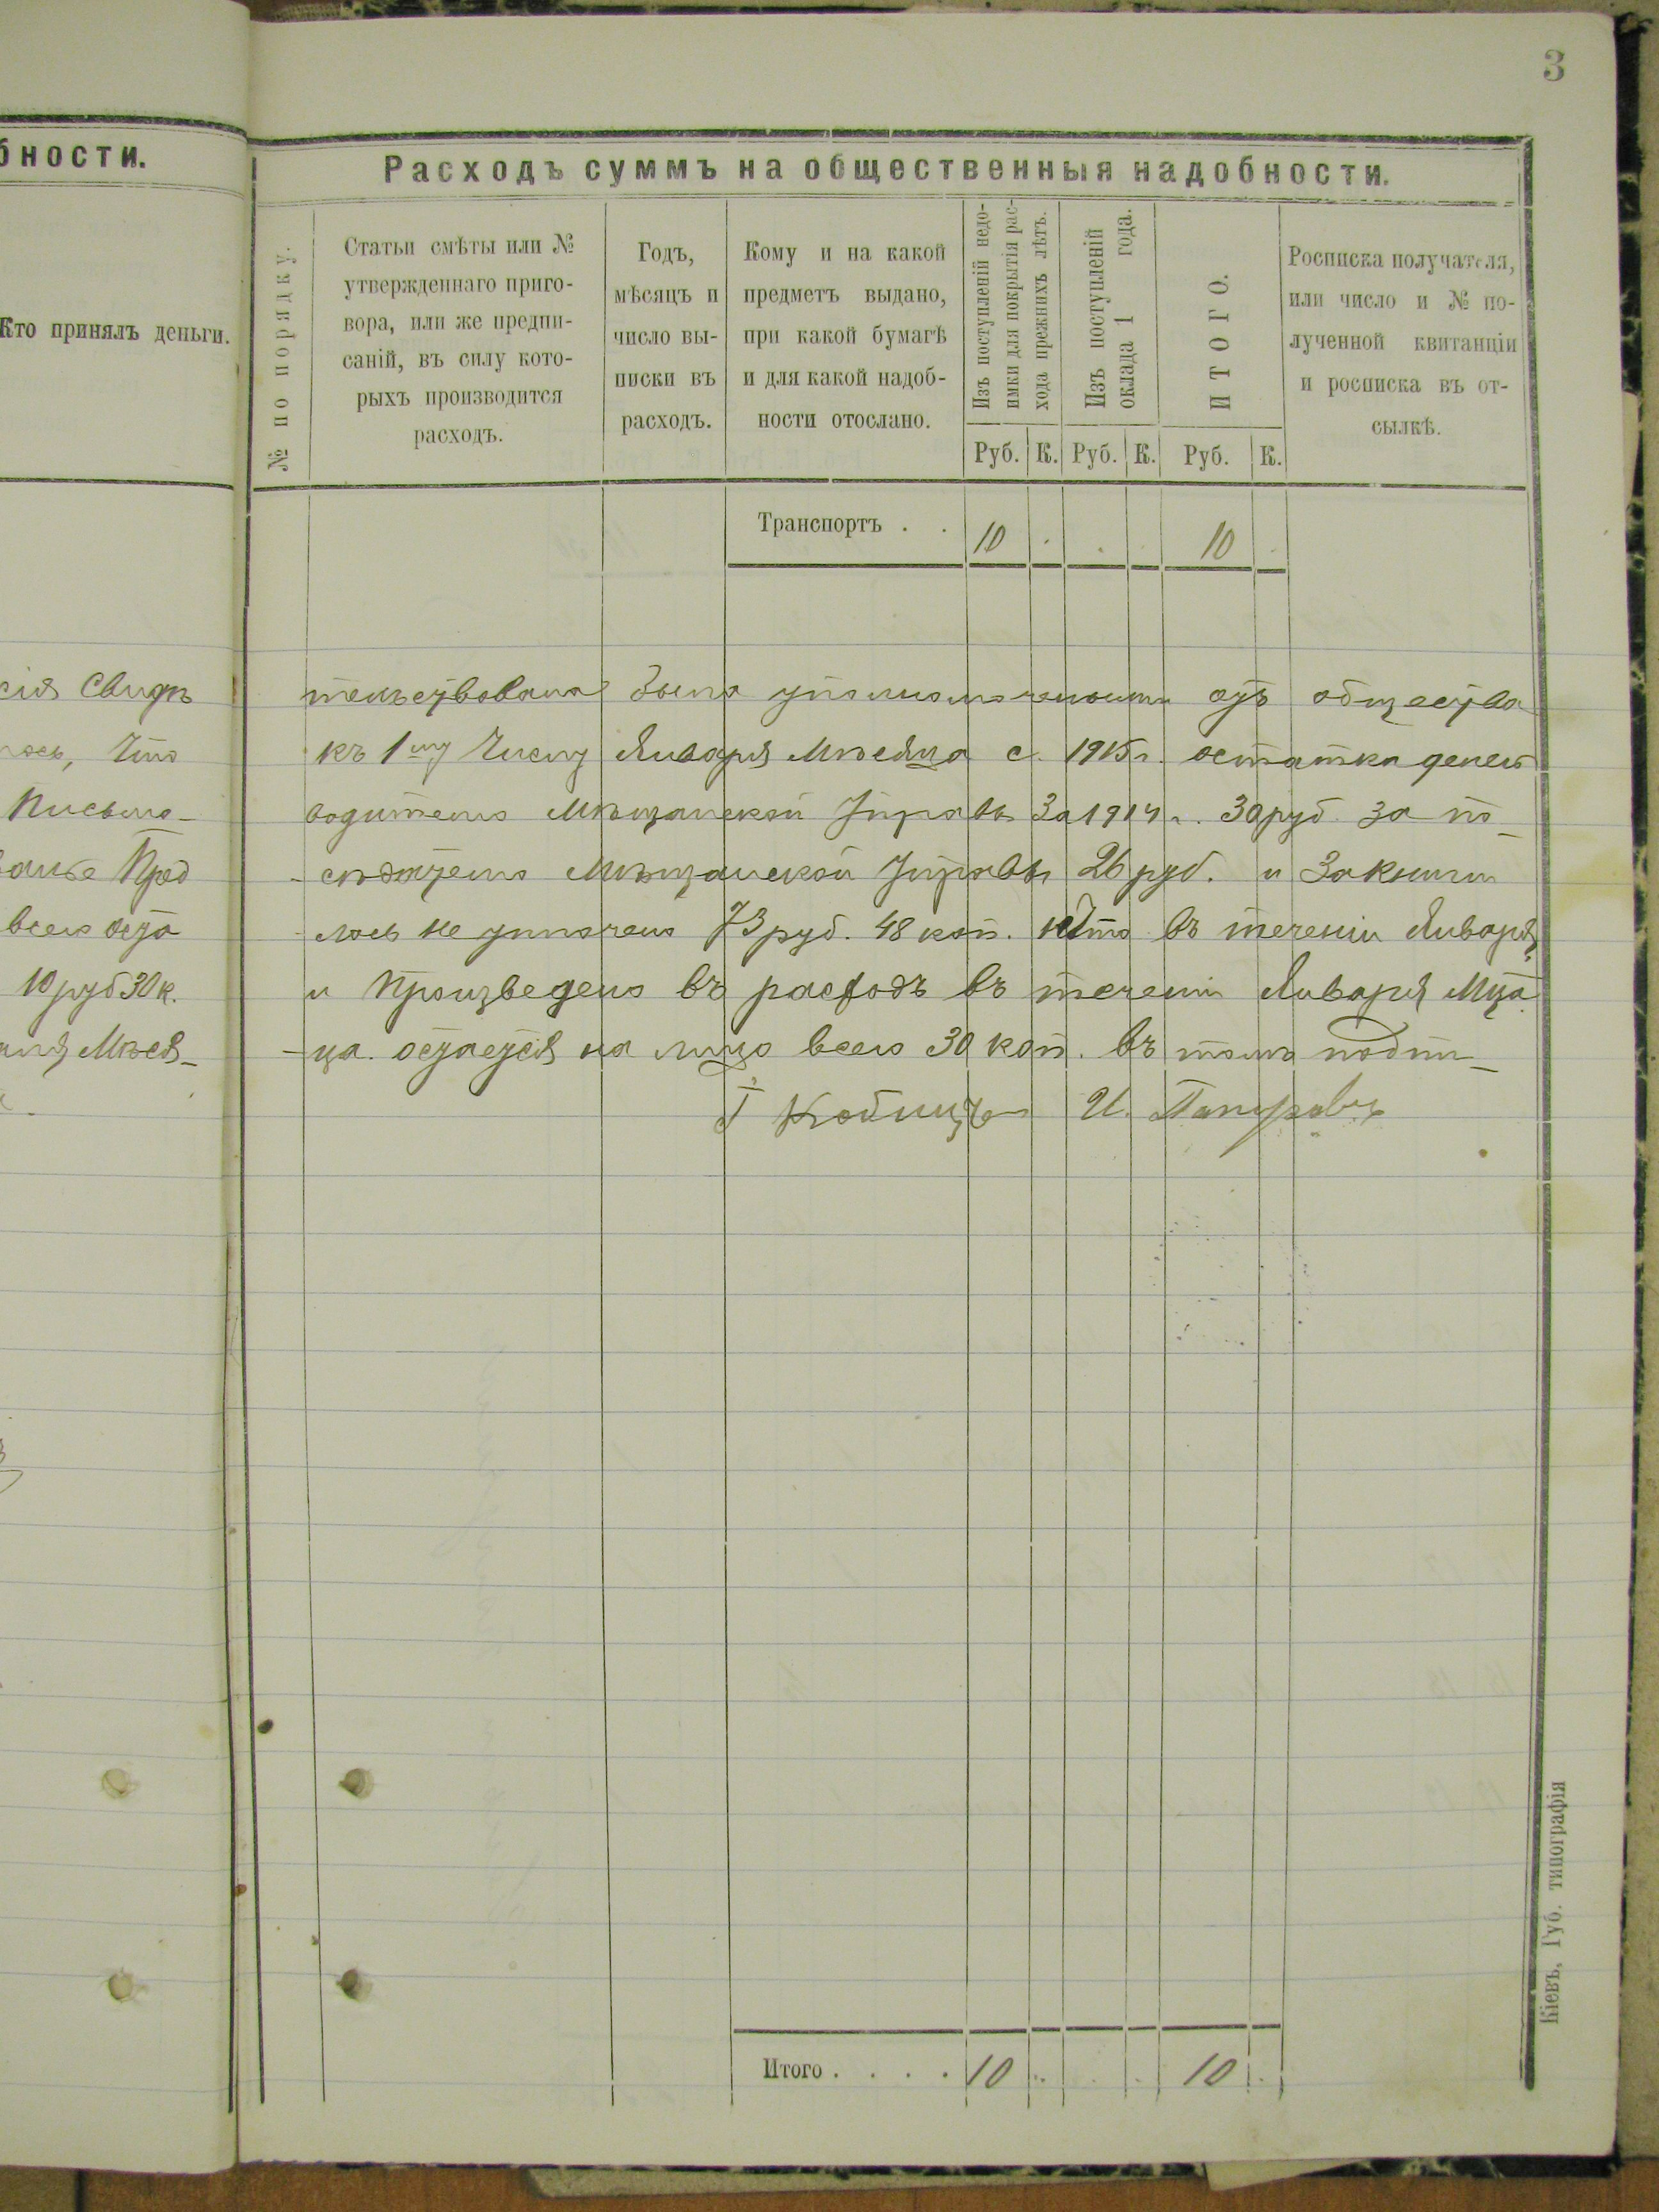 3
бности.
Кто принялъ деньги.
Свидѣ
Что
Письмо-
Пред
всего оста
10 руб 30 к.
Мѣся-
Расходъ суммъ на общественныя надобности.
№ по порядку.
Статьи смѣты или №
утвержденнаго приго-
вора, или же предпи-
саній, въ силу кото-
рыхъ производится
расходъ.
Годъ,
мѣсяцъ и
число вы-
писки въ
расходъ.
Кому и на какой
предметъ выдано,
при какой бумагѣ
и для какой надоб-
ности отослано.
Изъ поступленій недо-
имки для покрытія рас-
хода прежнихъ лѣтъ.
Изъ поступленій
оклада 1 года.
ИТОГО.
Росписка получателя,
или число и № по-
лученной квитанціи
и росписка въ от-
сылкѣ.
Руб. К. Руб. К. Руб. К.
Транспортъ . . 10 . . . 10 .
тельствована была уполномоченными отъ общества
къ 1му Числу Января Мѣсяца с. 1915 г. остатка денегъ
водителю Мѣщанской Управы За 1914 г. 30 руб. за по-
Мѣщанской Управы 26 руб. и За книги
лось не уплочено 73 руб. 48 коп. что въ теченіи Января
и Произведено въ расходъ въ теченіи Января Мца
-ца. остается на лицо всего 30 коп. въ томъ подпи-
И.
Итого . . . . 10 . . . 10 .
Кіевъ, Губ. типографія